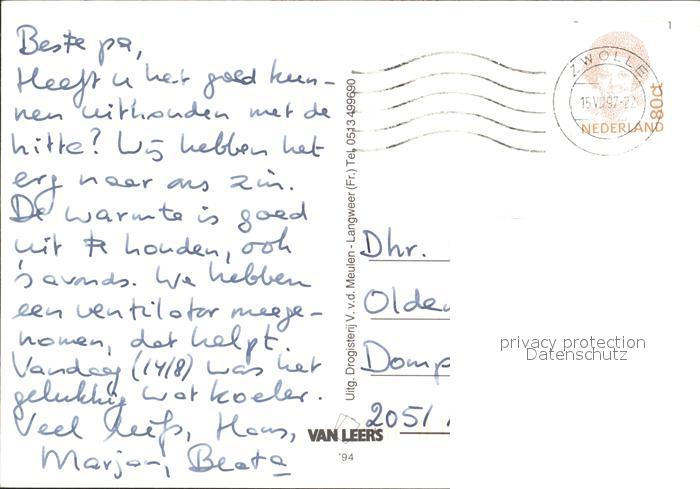 Beste pa,
Heeft u het goed kun-
nen uithouden met de
hitte? Wij hebben het
erg naar ons zin.
De warmte is goed
uit te houden, ook
's avonds. We hebben
een ventilator meege-
nomen, dat helpt.
Vandaag (14/8) was het
gelukkig wat koeler.
Veel liefs, Hans,
Marjan, Beata
Uitg. Drogisterij V. v.d. Meulen - Langweer (Fr.) Tel. 0513 499690
VAN LEERS
'94
ZWOLLE
NEDERLAND
80ct
1
Dhr.
Olden
Domp
2051
privacy protection
Datenschutz